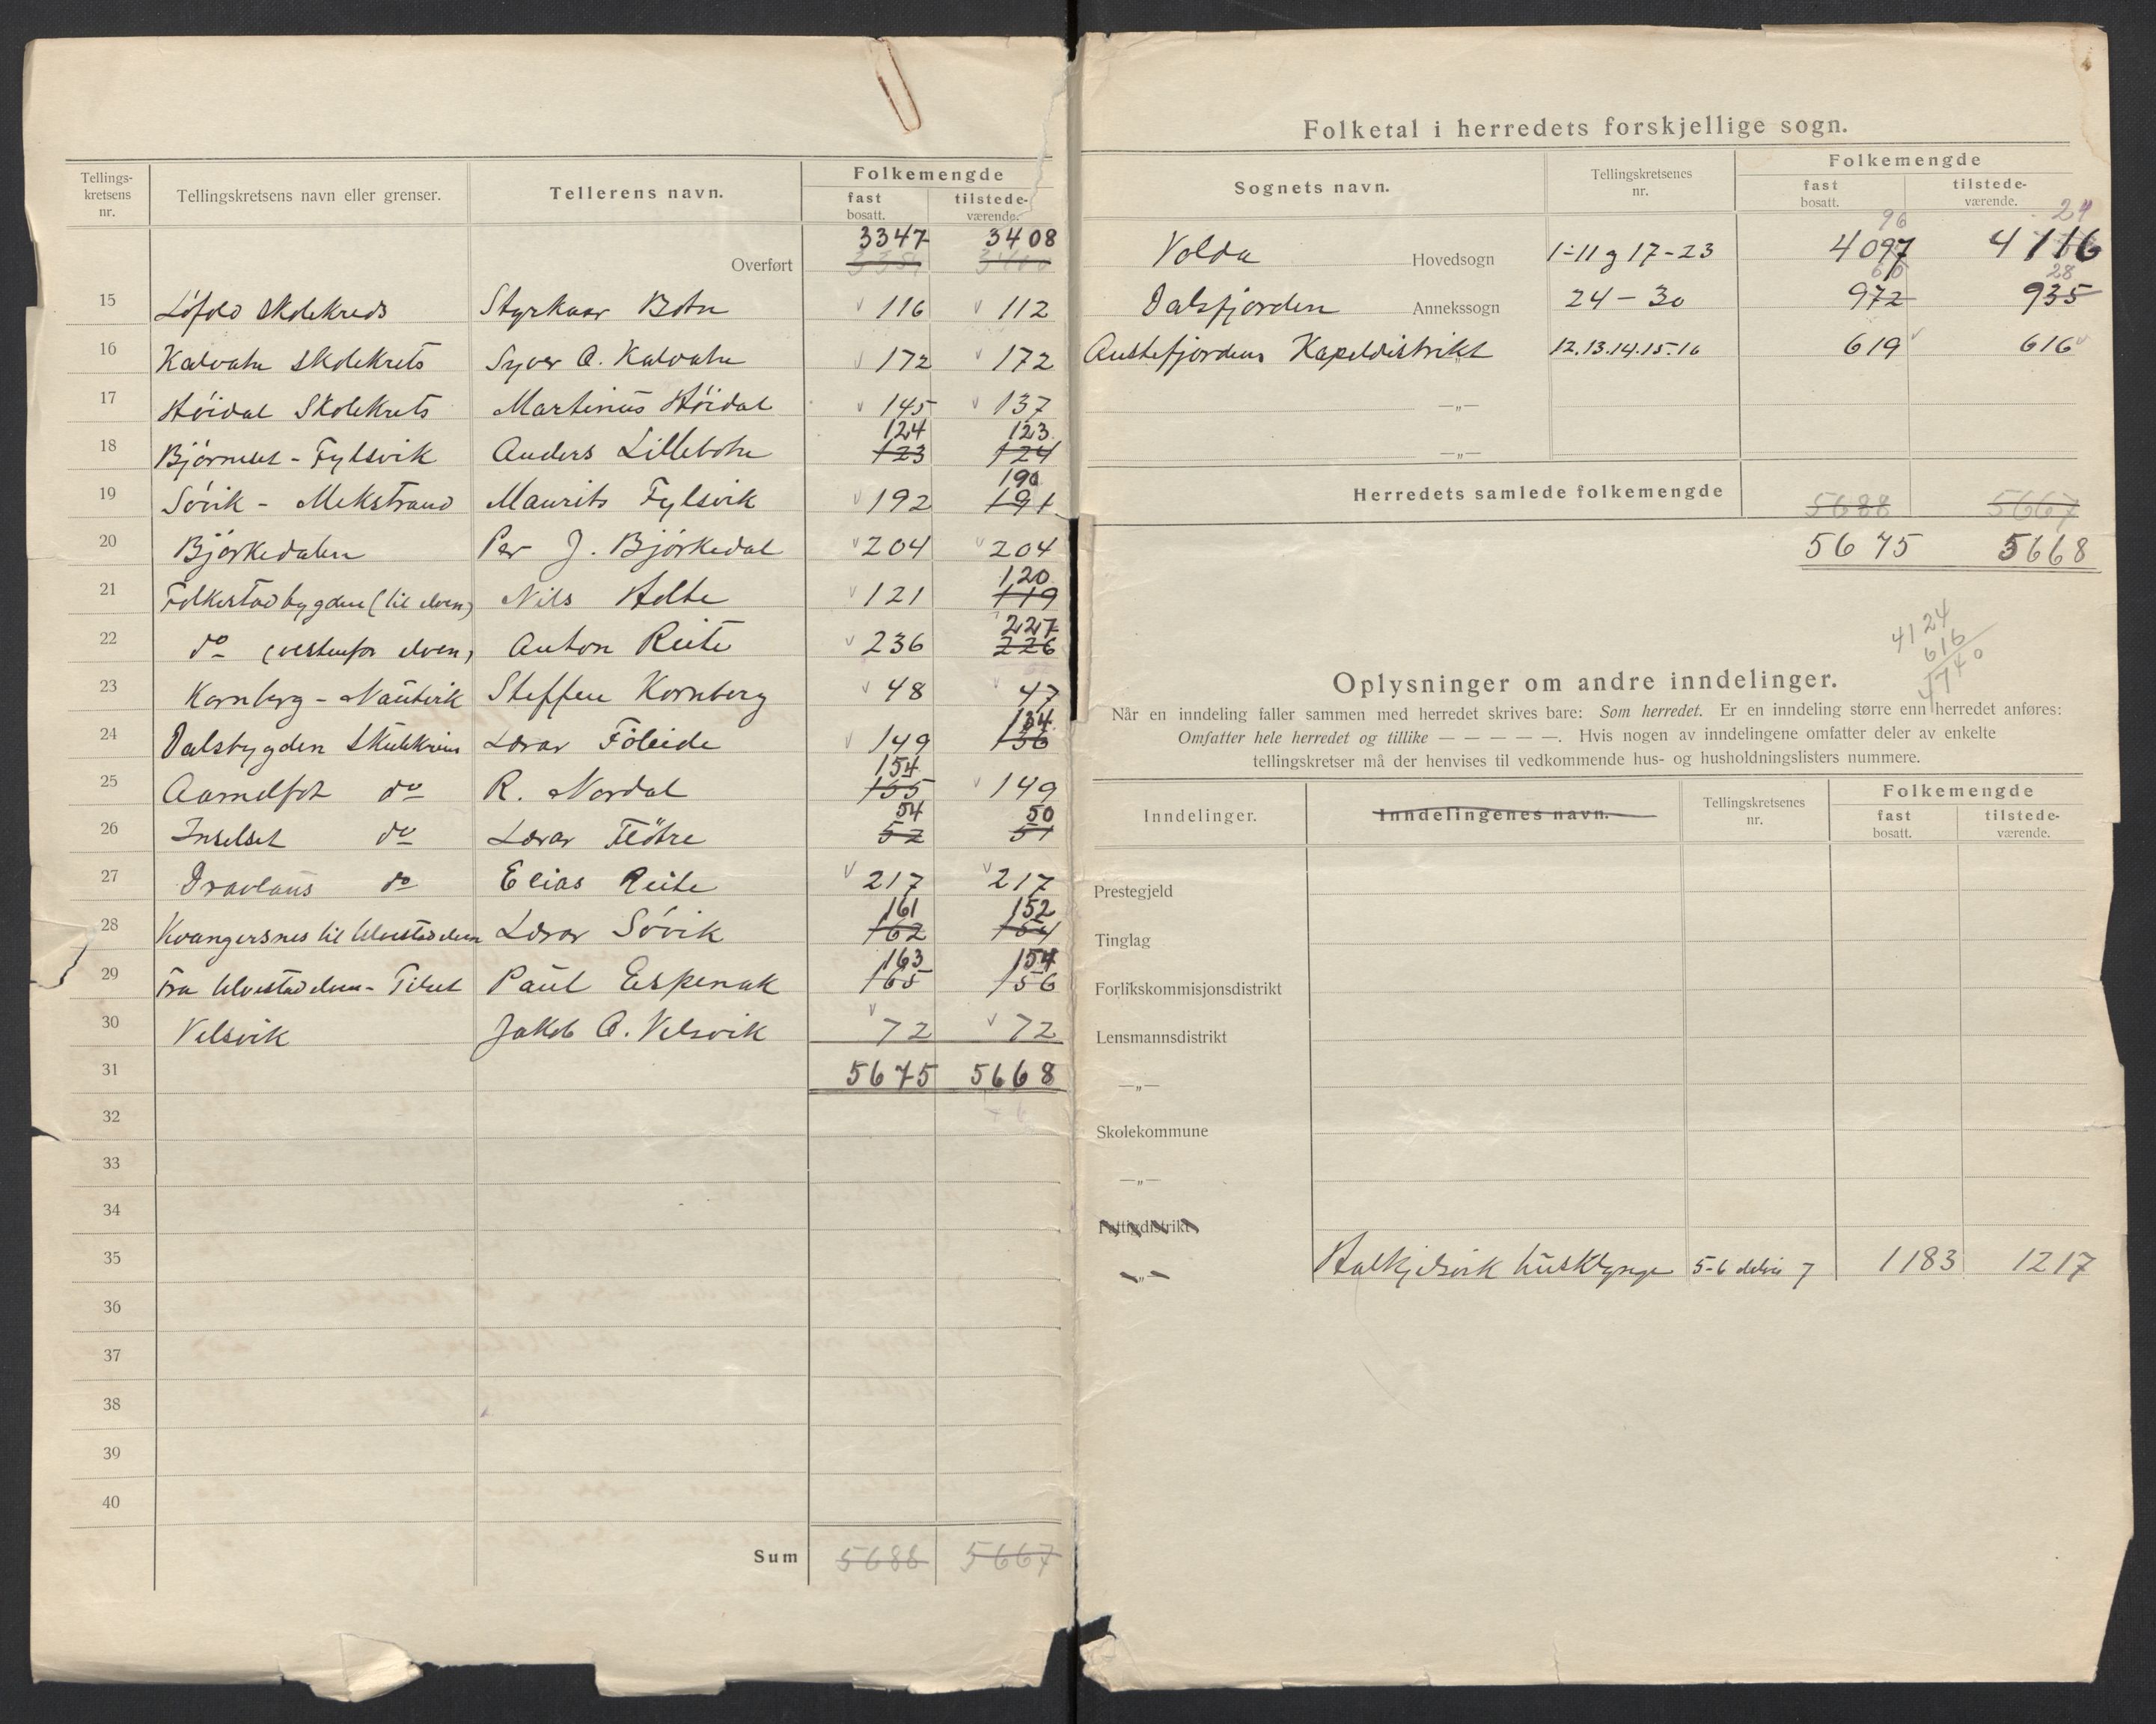 Tellings-kretsens nr. Tellingskretsens navn eller grenser. Tellerens navn. Folkemengde
fast bosatt. tilstede-værende.
3347 3408
Overført
15 Löfold Skolekreds Styrkaar Botn 116 112
16 Kalvatn Skolekrets Syver A. Kalvatn 172 172
17 Höidal Skolekrets Martinus Höidal 145 137
124 123
18 Björneset - Fylsvik Anders Lillebotn 123 124
190
19 Sövik - Mekstrand Maurits Fylsvik 192 191
20 Björkedalen Per J. Björkedal 204 204
120
21 Folkestadbygden (til elven) Nils Holte 121 119
227
22 do (vestenfor elven) Anton Reite 236 226
23 Kornberg - Nautvik Steffen Kornberg 48 47
134
24 Dalsbygden Skulekrins Lærar Föleide 149 136
154
25 Aamelfot do R. Nordal 155 149
54 50
26 Inselset do Lærar Flötre 52 51
27 Dravlaus do Elias Reite 217 217
161 152
28 Kvangersnes til Ulvestadelven Lærar Sövik 162 154
163 154
29 Fra Ulvestadelven - Paul Espenak 165 156
30 Velsvik Jakob A. Velsvik 72 72
31 5675 5668
32
33
34
35
36
37
38
39
40
Sum 5688 5667
Folketal i herredets forskjellige sogn.
Sognets navn. Tellingskretsenes nr. Folkemengde
fast bosatt. tilstede-værende.
96 24
Volda Hovedsogn 1-11 g 17-23 4097 4116
28
Dalsfjorden Annekssogn 24 - 30 972 935
Austefjordens Kapeldistrikt „ 12.13.14.15.16 619 616
—„—
—„—
Herredets samlede folkemengde 5688 5667
5675 5668
4124
616
4740
Oplysninger om andre inndelinger.
Når en inndeling faller sammen med herredet skrives bare: Som herredet. Er en inndeling større enn herredet anføres:
Omfatter hele herredet og tillike — — — — —. Hvis nogen av inndelingene omfatter deler av enkelte
tellingskretser må der henvises til vedkommende hus- og husholdningslisters nummere.
Inndelinger. Inndelingenes navn. Tellingskretsenes nr. Folkemengde
fast bosatt. tilstede-værende.
Prestegjeld
Tinglag
Forlikskommisjonsdistrikt
Lensmannsdistrikt
—„—
Skolekommune
—„—
Fattigdistrikt
—„— Halkjelsvik husklynge 5-6 delvis 7 1183 1217